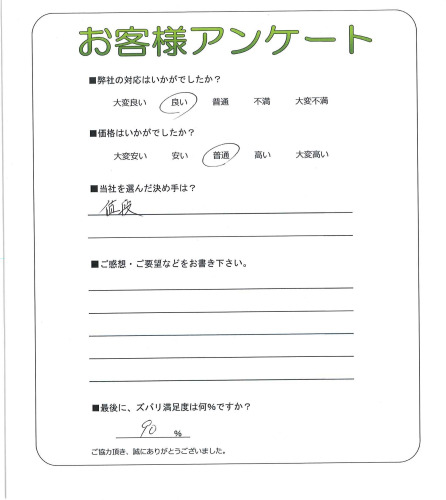 お客様アンケート
■弊社の対応はいかがでしたか？
大変良い 良い 普通 不満 大変不満
■価格はいかがでしたか？
大変安い 安い 普通 高い 大変高い
■当社を選んだ決め手は？
値段
■ご感想・ご要望などをお書き下さい。
■最後に、ズバリ満足度は何%ですか？
90 %
ご協力頂き、誠にありがとうございました。